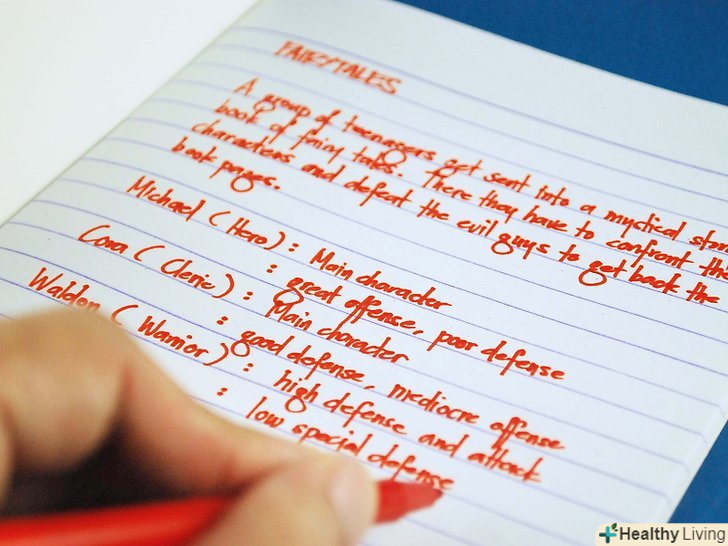 FAIRYTALES
A group of teenagers get sent into a mystical
book of fairy tales. There they have to confront
characters and defeat the evil guys to get back the
book pages.
Michael (Hero): Main character
: great offense, poor defense
Cora (Cleric): Main character
: good defense, mediocre offense
Waldon (Warrior): high defense and attack
: low special defense
Healthy Living